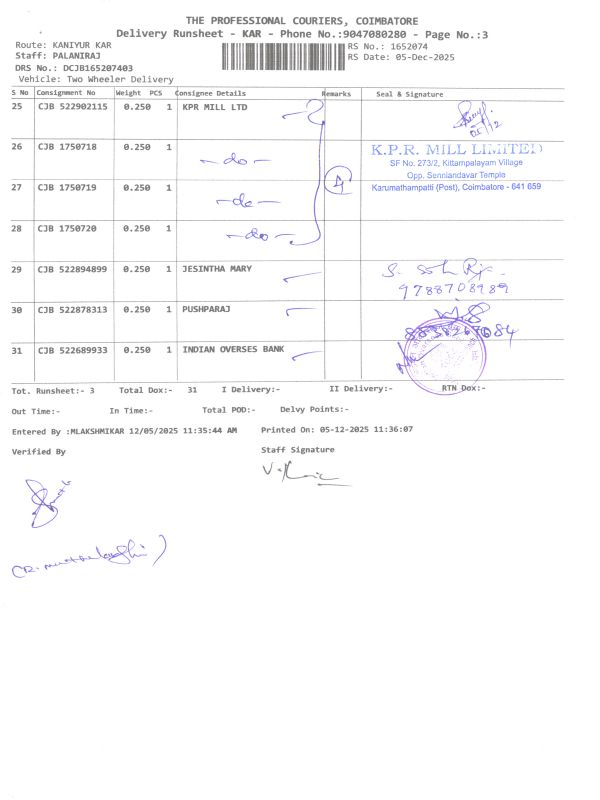 THE PROFESSIONAL COURIERS, COIMBATORE
Delivery Runsheet - KAR - Phone No.:9047080280 - Page No.:3
Route: KANIYUR KAR RS No.: 1652074
Staff: PALANIRAJ RS Date: 05-Dec-2025
DRS No.: DCJB165207403
Vehicle: Two Wheeler Delivery
S No Consignment No Weight PCS Consignee Details Remarks Seal & Signature
25 CJB 522902115 0.250 1 KPR MILL LTD
05/12
26 CJB 1750718 0.250 1 -do- K.P.R. MILL LIMITED
SF No. 273/2, Kittampalayam Village
Opp. Senniandavar Temple
27 CJB 1750719 0.250 1 -do- 4 Karumathampatti (Post), Coimbatore - 641 659
28 CJB 1750720 0.250 1 -do-
29 CJB 522894899 0.250 1 JESINTHA MARY
9788708989
30 CJB 522878313 0.250 1 PUSHPARAJ
31 CJB 522689933 0.250 1 INDIAN OVERSES BANK
Tot. Runsheet:- 3 Total Dox:- 31 I Delivery:- II Delivery:- RTN Dox:-
Out Time:- In Time:- Total POD:- Delvy Points:-
Entered By :MLAKSHMIKAR 12/05/2025 11:35:44 AM Printed On: 05-12-2025 11:36:07
Verified By Staff Signature